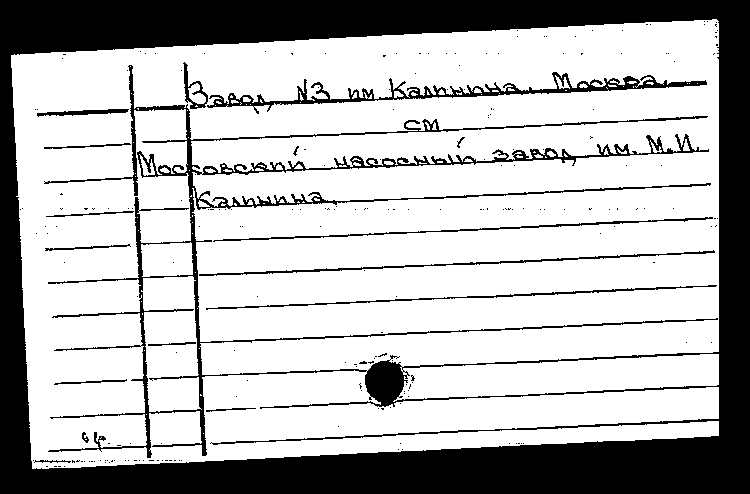 Завод N3 им Калинина. Москва.
см
Московский насосный завод им. М.И.
Калинина.